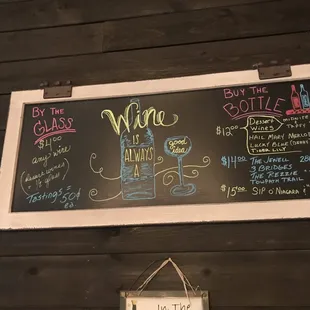 BY THE
GLASS
$4.00
any wine
Tastings = 50¢
EA
Wine
IS
ALWAYS
A
good
idea
BUY THE
BOTTLE
$12.00
DESSERT
WINES
HAIL MARY
LUCKY BLUE
TIGER LILY
$14.00
THE JEWELL
3 BRIDGES
THE REZZIE
TOWPATH TRAIL
$15.00
SIP O'NIAGARA
IN THE